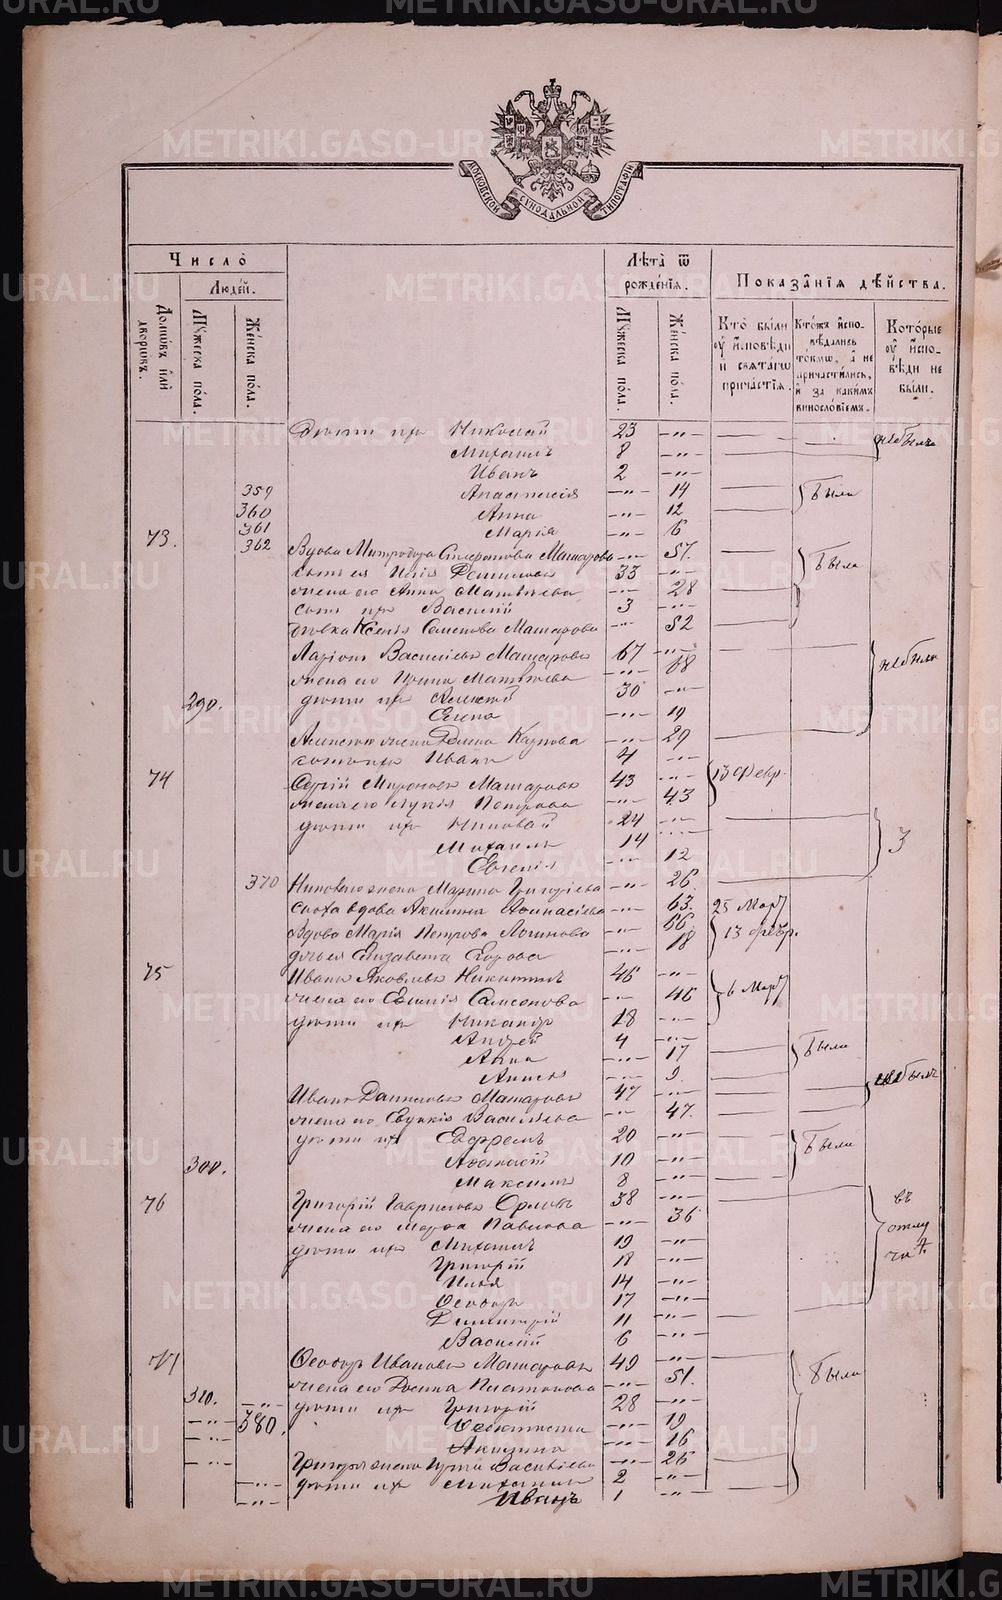 METRIKI.GASO-URAL.RU
МОСКОВСКОЙ СѴНОДАЛЬНОЙ ТИПОГРАФІИ
Число̀
Людей.
Домѡвъ илѝ дворѡвъ.
Мꙋжеска по́ла.
Же́нска по́ла.
Лѣ́та ѿ рожде́нїѧ.
Мꙋжеска по́ла.
Же́нска по́ла.
Показа̑нїѧ дѣ́йства.
Кто̀ бы́ли ᲂу҆ и҆́сповѣди и҆ свѧта́гѡ прича́стїѧ.
Кто́жъ и҆спо-вѣ́дались то́кмѡ, а҆ не причасти́лись, и҆ за каки́мъ виносло́вїемъ.
Кото́рые ᲂу҆ и҆́спо-вѣди не бы́ли.
Дѣти ихъ Николай 23 -"- небылъ
Михаилъ 8 -"-
Иванъ 2 -"-
359 Анастасія -"- 14 Были
360 Анна -"- 12
361 Марія -"- 6
73. 362 Вдова Митродора Машарова -"- 57. Были
сынъ ея 33 -"-
жена его Анна Матвѣева -"- 28
сынъ ихъ Василій 3 -"-
дѣвка Ксенія Семенова Машарова -"- 52
Ларіонъ Васильевъ Машаровъ 67 -"- небыли
жена его Ирина Матвѣева -"- 68
290. дѣти ихъ Алексѣй 30 -"-
Елена -"- 19
Алексѣя жена Карпова -"- 29
сынъ ихъ Иванъ 4 -"-
74 Сергій Мироновъ Машаровъ 43 -"- 13 Февр.
жена его Петрова -"- 43
дѣти ихъ 24 -"- 3
Михаилъ 14 -"-
Евгенія -"- 12
370 жена Марина Григорьева -"- 26
сноха вдова Акилина Афанасіева -"- 63. 25 Март
Вдова Марія Петрова Логинова -"- 66 13 Февр.
дочь ея Елизавета Егорова -"- 18
75 Иванъ Яковлевъ Никитинъ 46 -"- 6 Март
жена его Евгенія Самсонова -"- 46
дѣти ихъ Никандръ 18 -"-
Андрей 4 -"- Были
Анна -"- 17
-"- 9
Иванъ Даниловъ Машаровъ 47 -"- небылъ
жена его Евдокія Васильева -"- 47.
дѣти ихъ Ефремъ 20 -"- Были
300. Афанасій 10 -"-
Максимъ 8 -"-
76 Григорій Гавриловъ Орловъ 38 -"- въ отлучкѣ
жена его Марфа Павлова -"- 36
дѣти ихъ Михаилъ 19 -"-
Григорій 18 -"-
Илья 14 -"-
Ѳеодоръ 17 -"-
Димитрій 11 -"-
Василій 6 -"-
77 Ѳеодоръ Ивановъ Машаровъ 49 -"- Были
жена его Платонова -"- 51.
310. -"- дѣти ихъ Григорій 28 -"-
-"- 380. -"- 19
-"- Акилина -"- 16
-"- Григорія жена Васильева -"- 26
-"- дѣти ихъ Михаилъ 2 -"-
-"- Иванъ 1 -"-